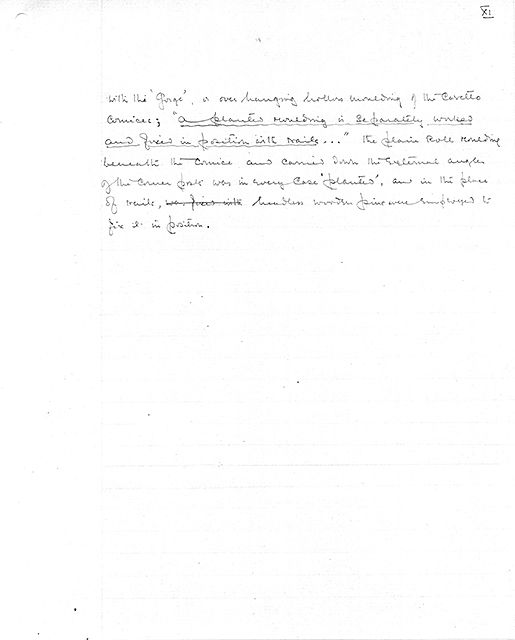 XI
with the 'Gorge', or over hanging hollow moulding of the Cavetto
Cornices; "a planted moulding is separately worked
and fixed in position with nails..." The plain Role moulding
beneath the Cornice and carried down the external angles
of the Corner posts was in every case 'planted', and in the place
of nails, was fixed with headless wooden pins were employed to
fix it in position.